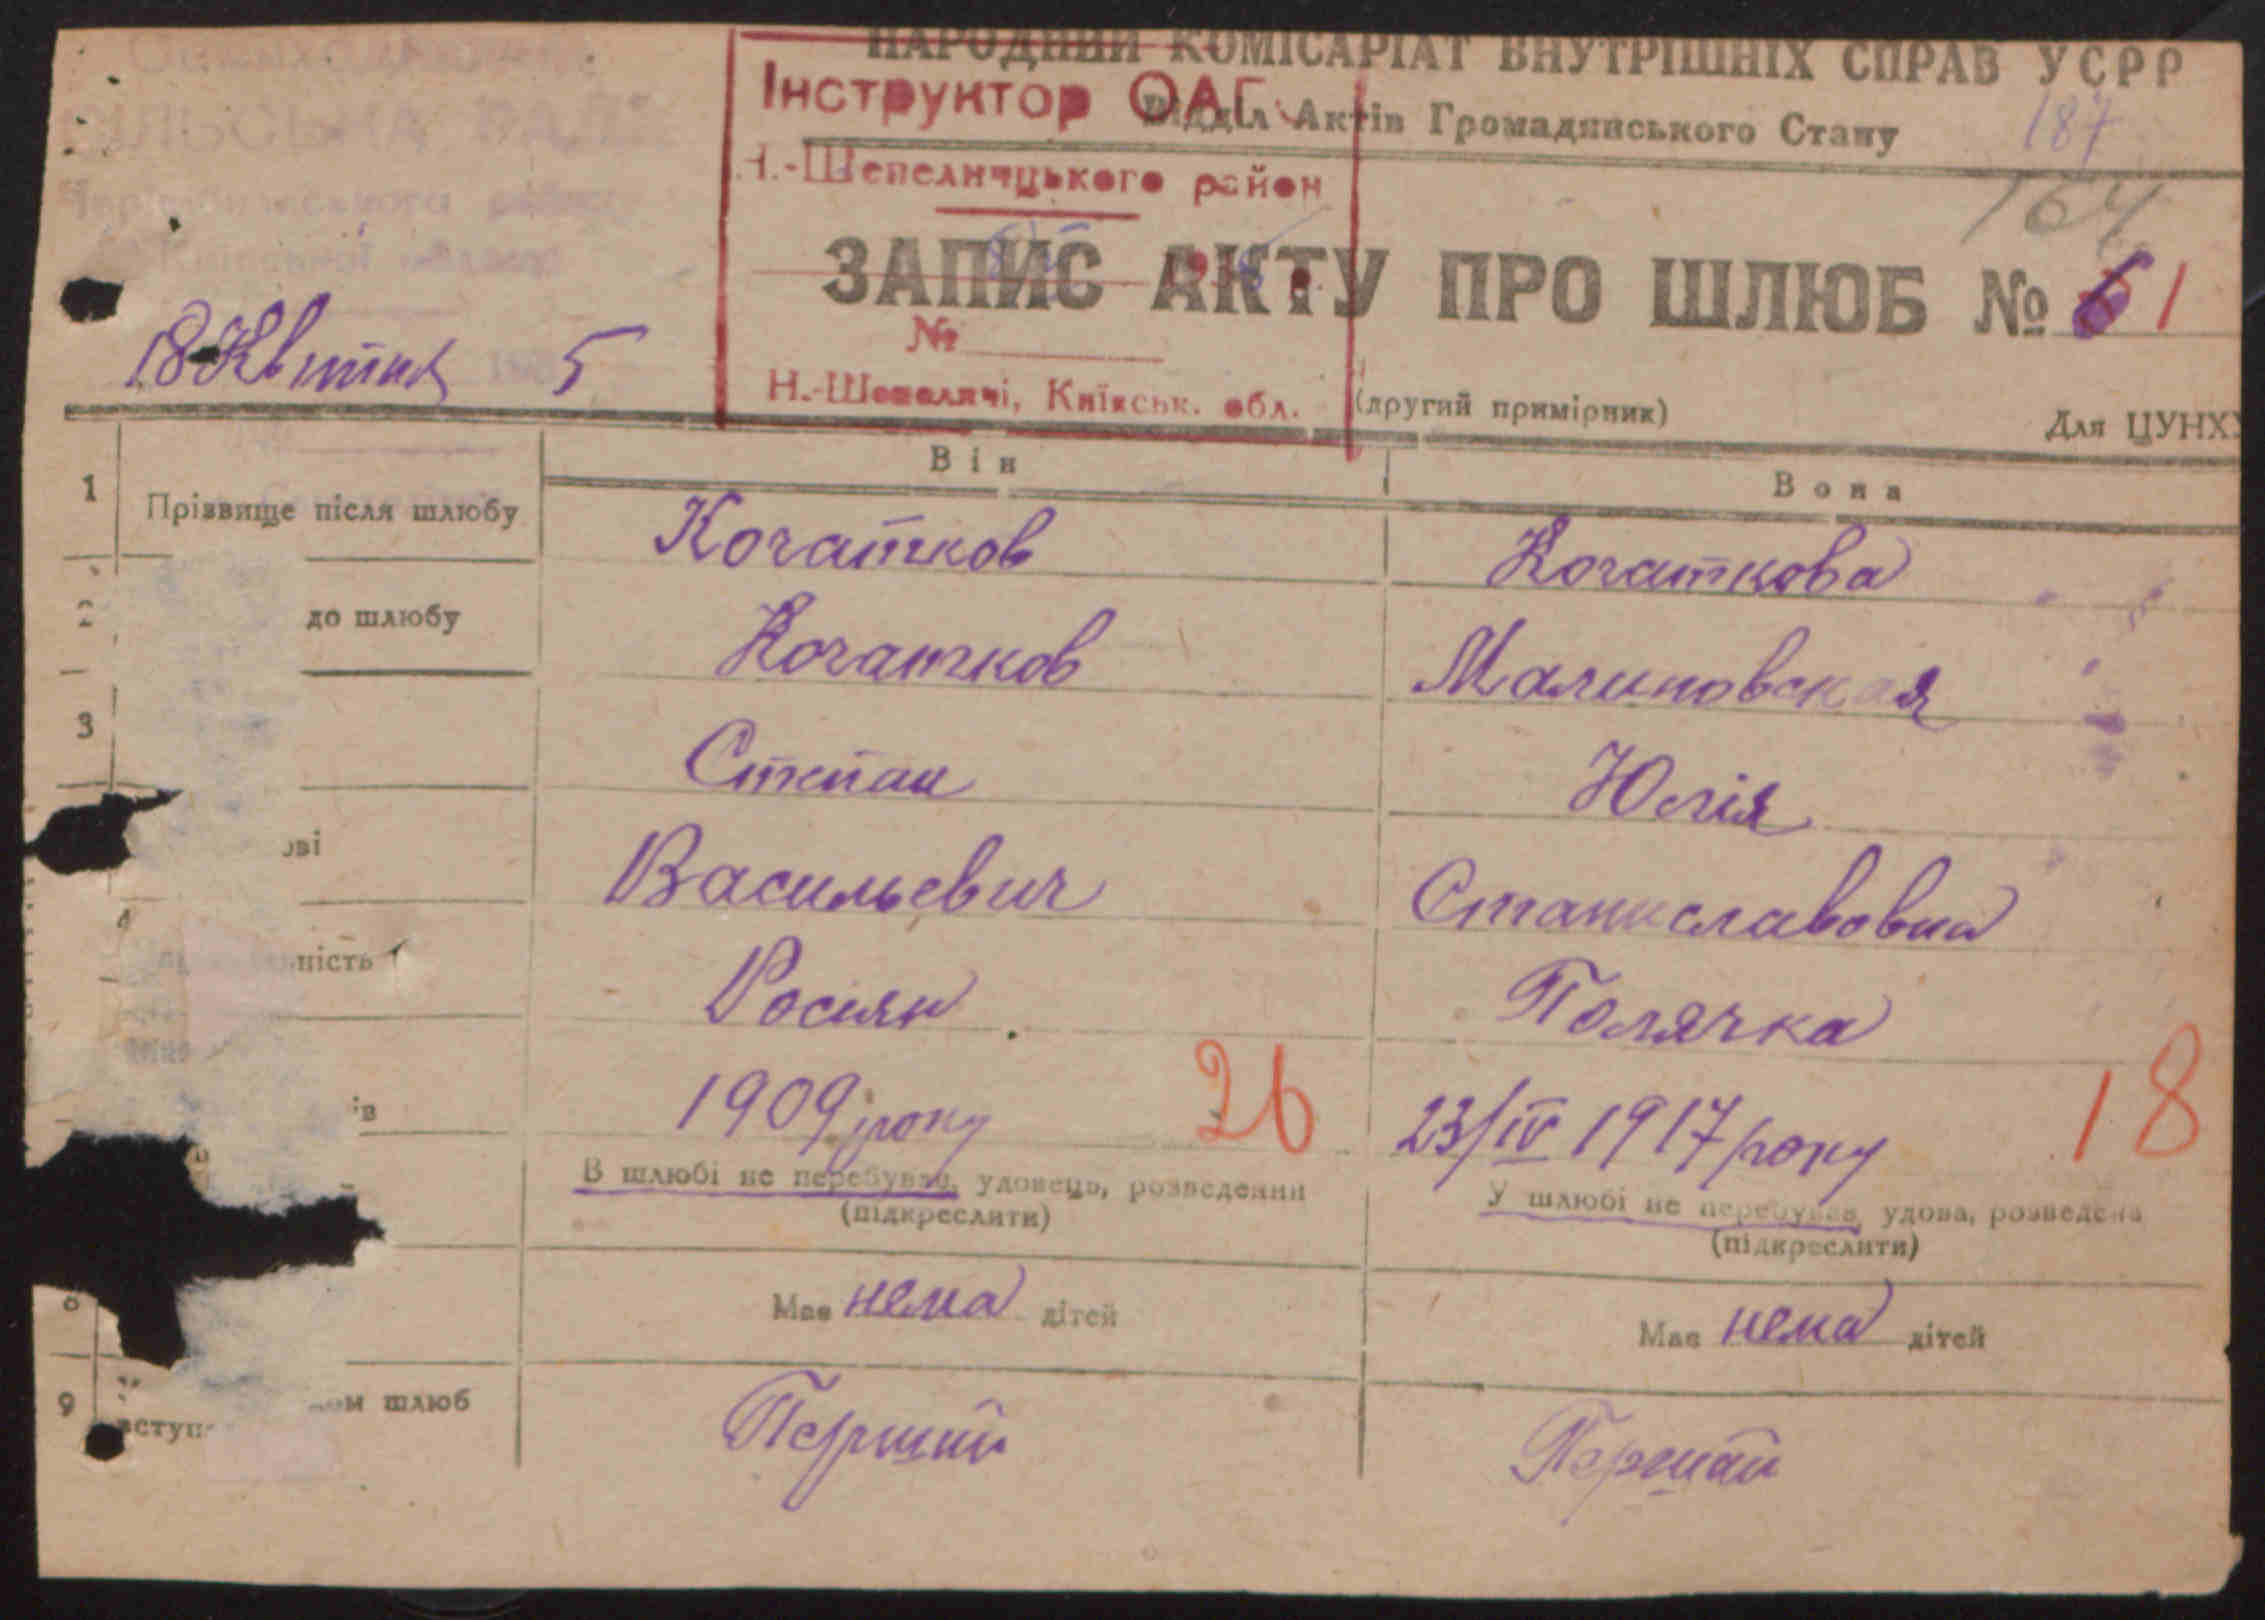 НАРОДНИЙ КОМІСАРІАТ ВНУТРІШНІХ СПРАВ УСРР
Відділ Актів Громадянського Стану
187
164
СІЛЬСЬКА РАДА
Київської області
Інструктор ОАГС
Н.-Шепелицького район
ЗАПИС АКТУ ПРО ШЛЮБ № 61
№
Н.-Шепеличі, Київськ. обл.
18 Квітня 193 5
(другий примірник)
Для ЦУНХУ
Він
Вона
1 Прізвище після шлюбу Кочатков Кочаткова
2 до шлюбу Кочатков Малиновская
3 Степан Юлія
ові Васильевич Станиславовна
4 ність Росиян Полячка
ів 1909 року 26 23/IV 1917 року 18
В шлюбі не перебував, удовець, розведений
(підкреслити)
У шлюбі не перебувала, удова, розведена
(підкреслити)
8 Має нема дітей Має нема дітей
9 вступ ом шлюб Перший Перший